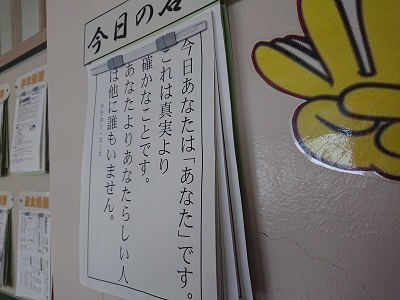 今日の名
今日あなたは「あなた」です。
これは真実より
確かなことです。
あなたよりあなたらしい人
は他に誰もいません。
ドクター・スース